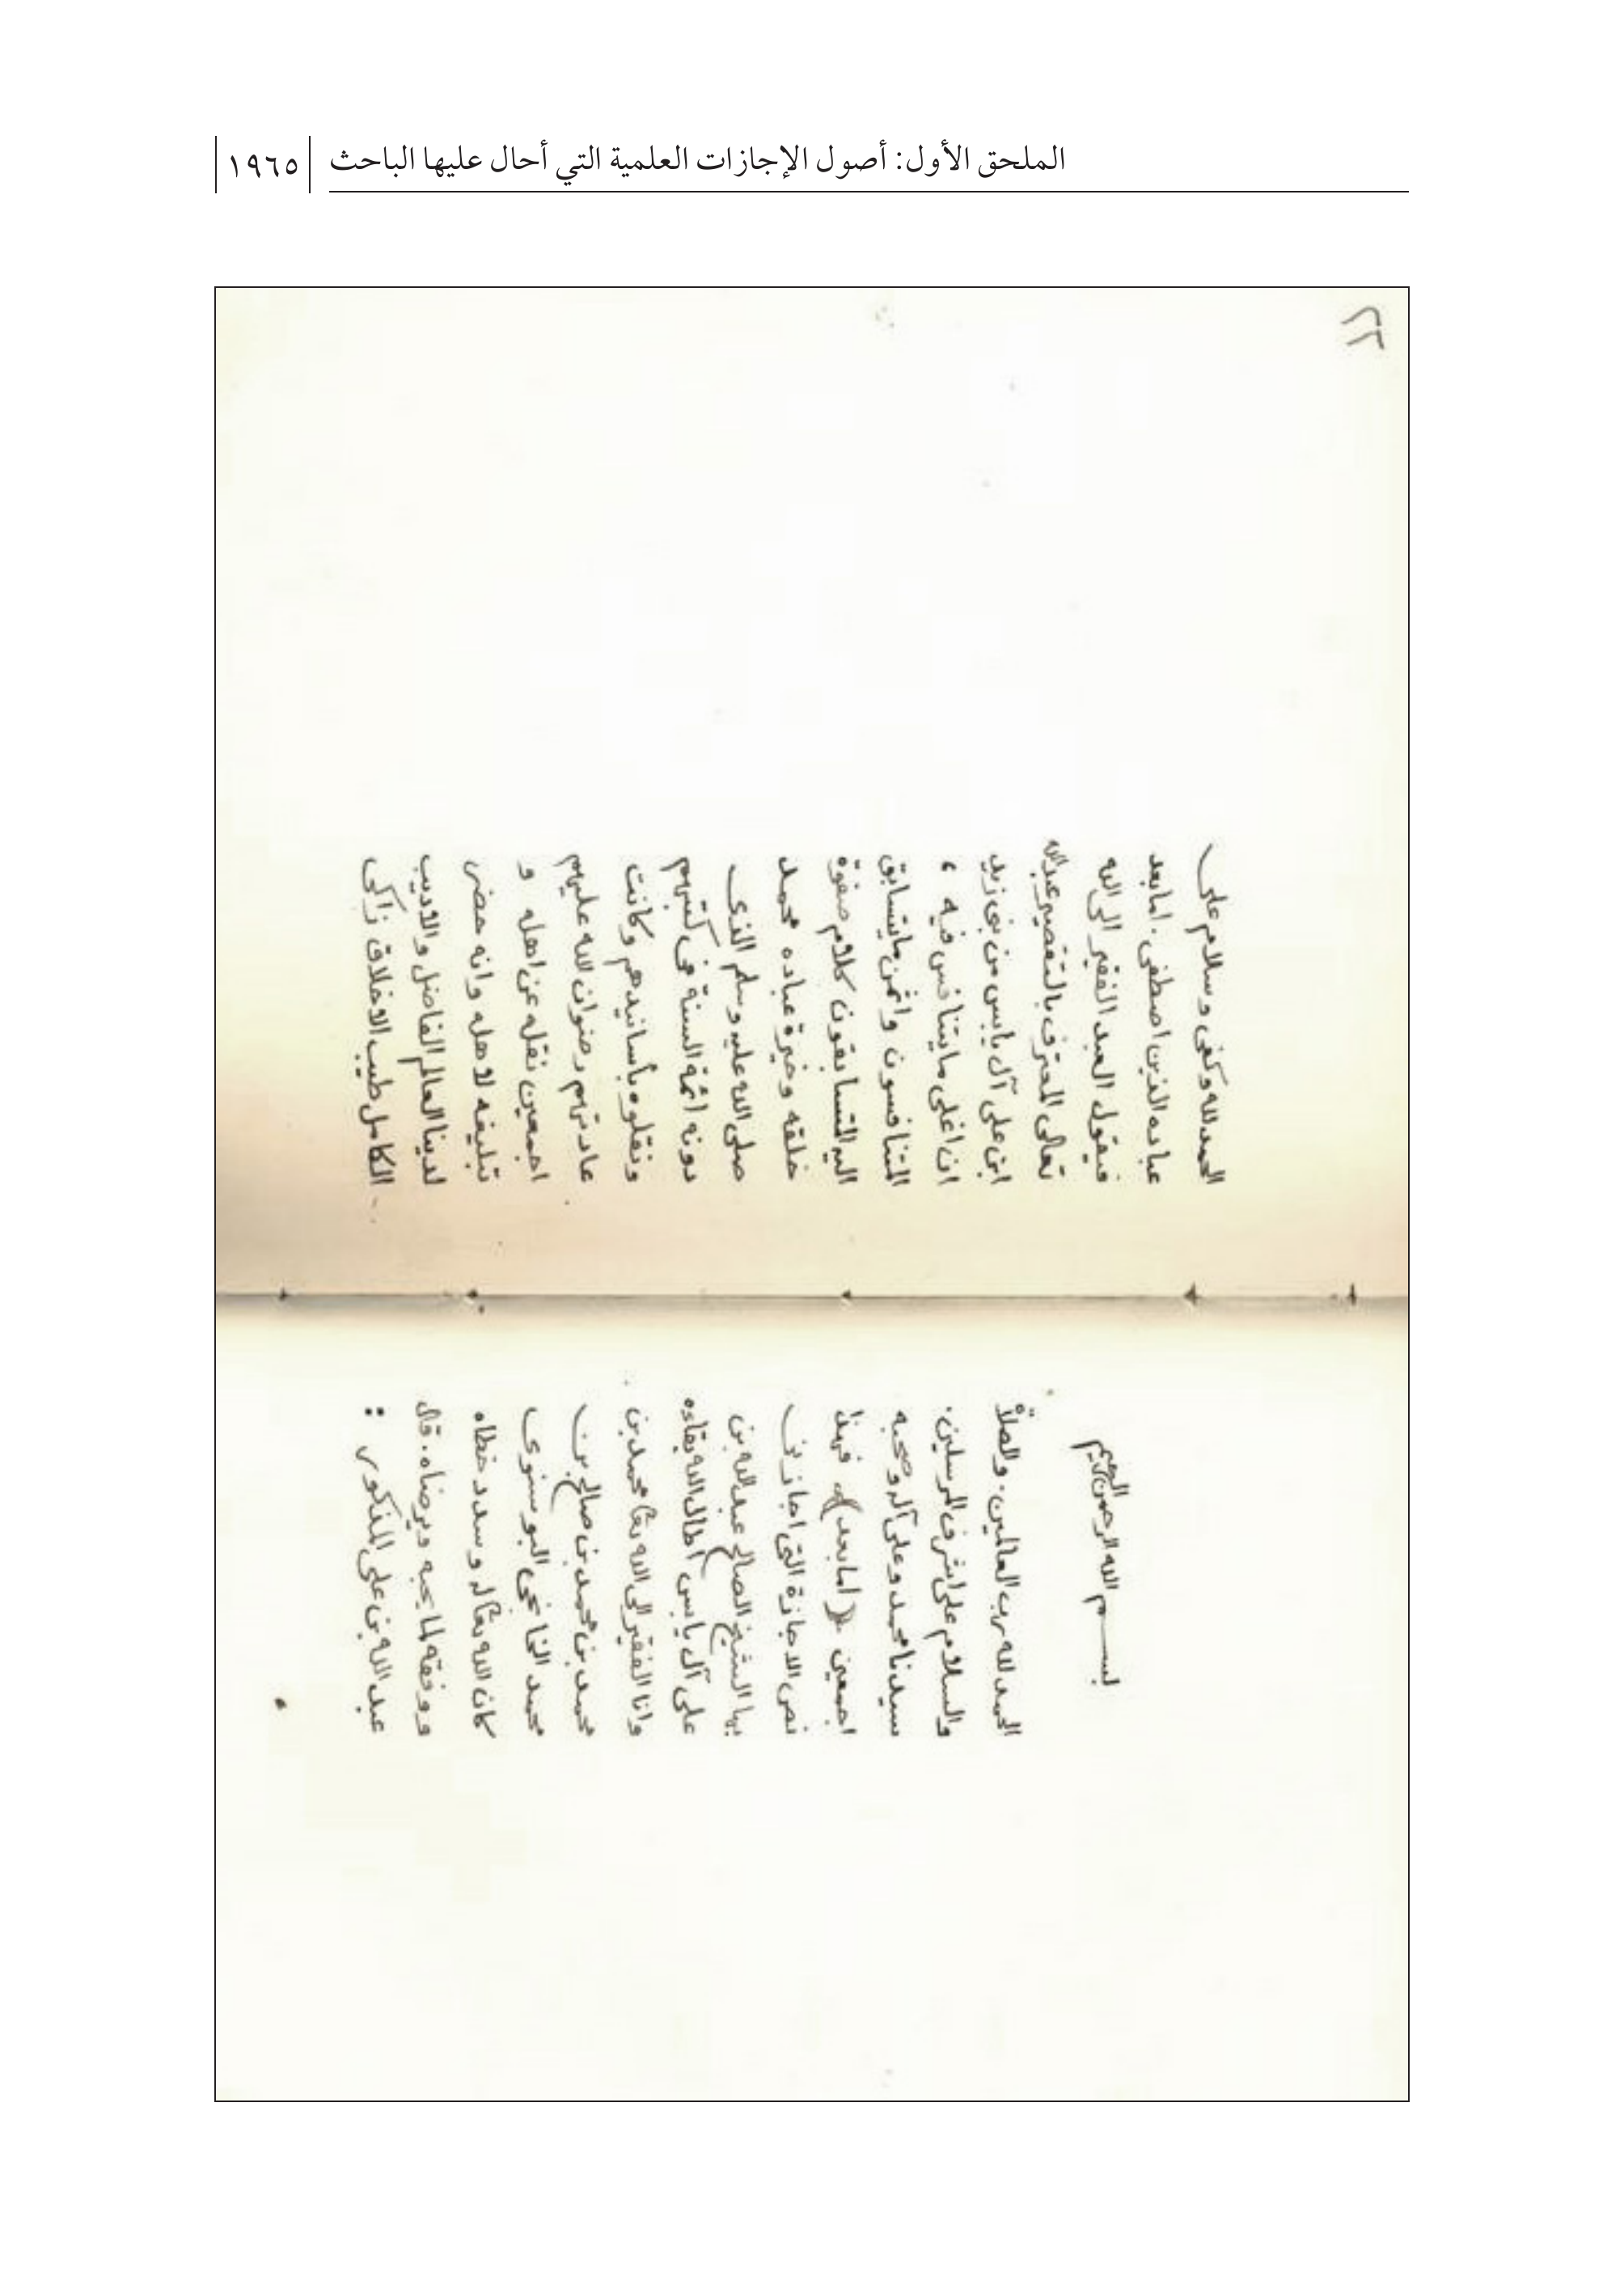 الملحق الأول: أصول الإجازات العلمية التي أحال عليها الباحث
١٩٦٥
٢٢
بسم الله الرحمن الرحيم
الحمد لله رب العالمين. والصلاة
والسلام على اشرف المرسلين.
سيدنا محمد وعلى آله وصحبه
اجمعين (اما بعد) فهذا
نص الاجازة التى اجازنى
بها الشيخ الصالح عبد الله بن
على آل يابس اطال الله بقاءه
وانا الفقير الى الله تعالى محمد بن
محمد بن محمد بن صالح بن
محمد الخانجى البوسنوى
كان الله تعالى له وسدد خطاه
ووفقه لما يحبه ويرضاه. قال
عبد الله بن على المذكور :
الحمد لله وكفى وسلام على
عباده الذين اصطفى. اما بعد
فيقول العبد الفقير الى الله
تعالى المعترف بالتقصير عبد الله
ابن على آل يابس من بنى زيد
ان اغلى ما يتنافس فيه ،
المتنافسون واثمن ما يتسابق
اليه المتسابقون كلام صفوة
خلقه وخيرة عباده محمد
صلى الله عليه وسلم الذى
دونه ائمة السنة فى كتبهم
ونقلوه بأسانيدهم وكانت
عادتهم رضوان الله عليهم
اجمعين نقله عن اهله و
تبليغه لاهله وانه حضر
لدينا العالم الفاضل والاديب
الكامل طيب الاخلاق زاكى